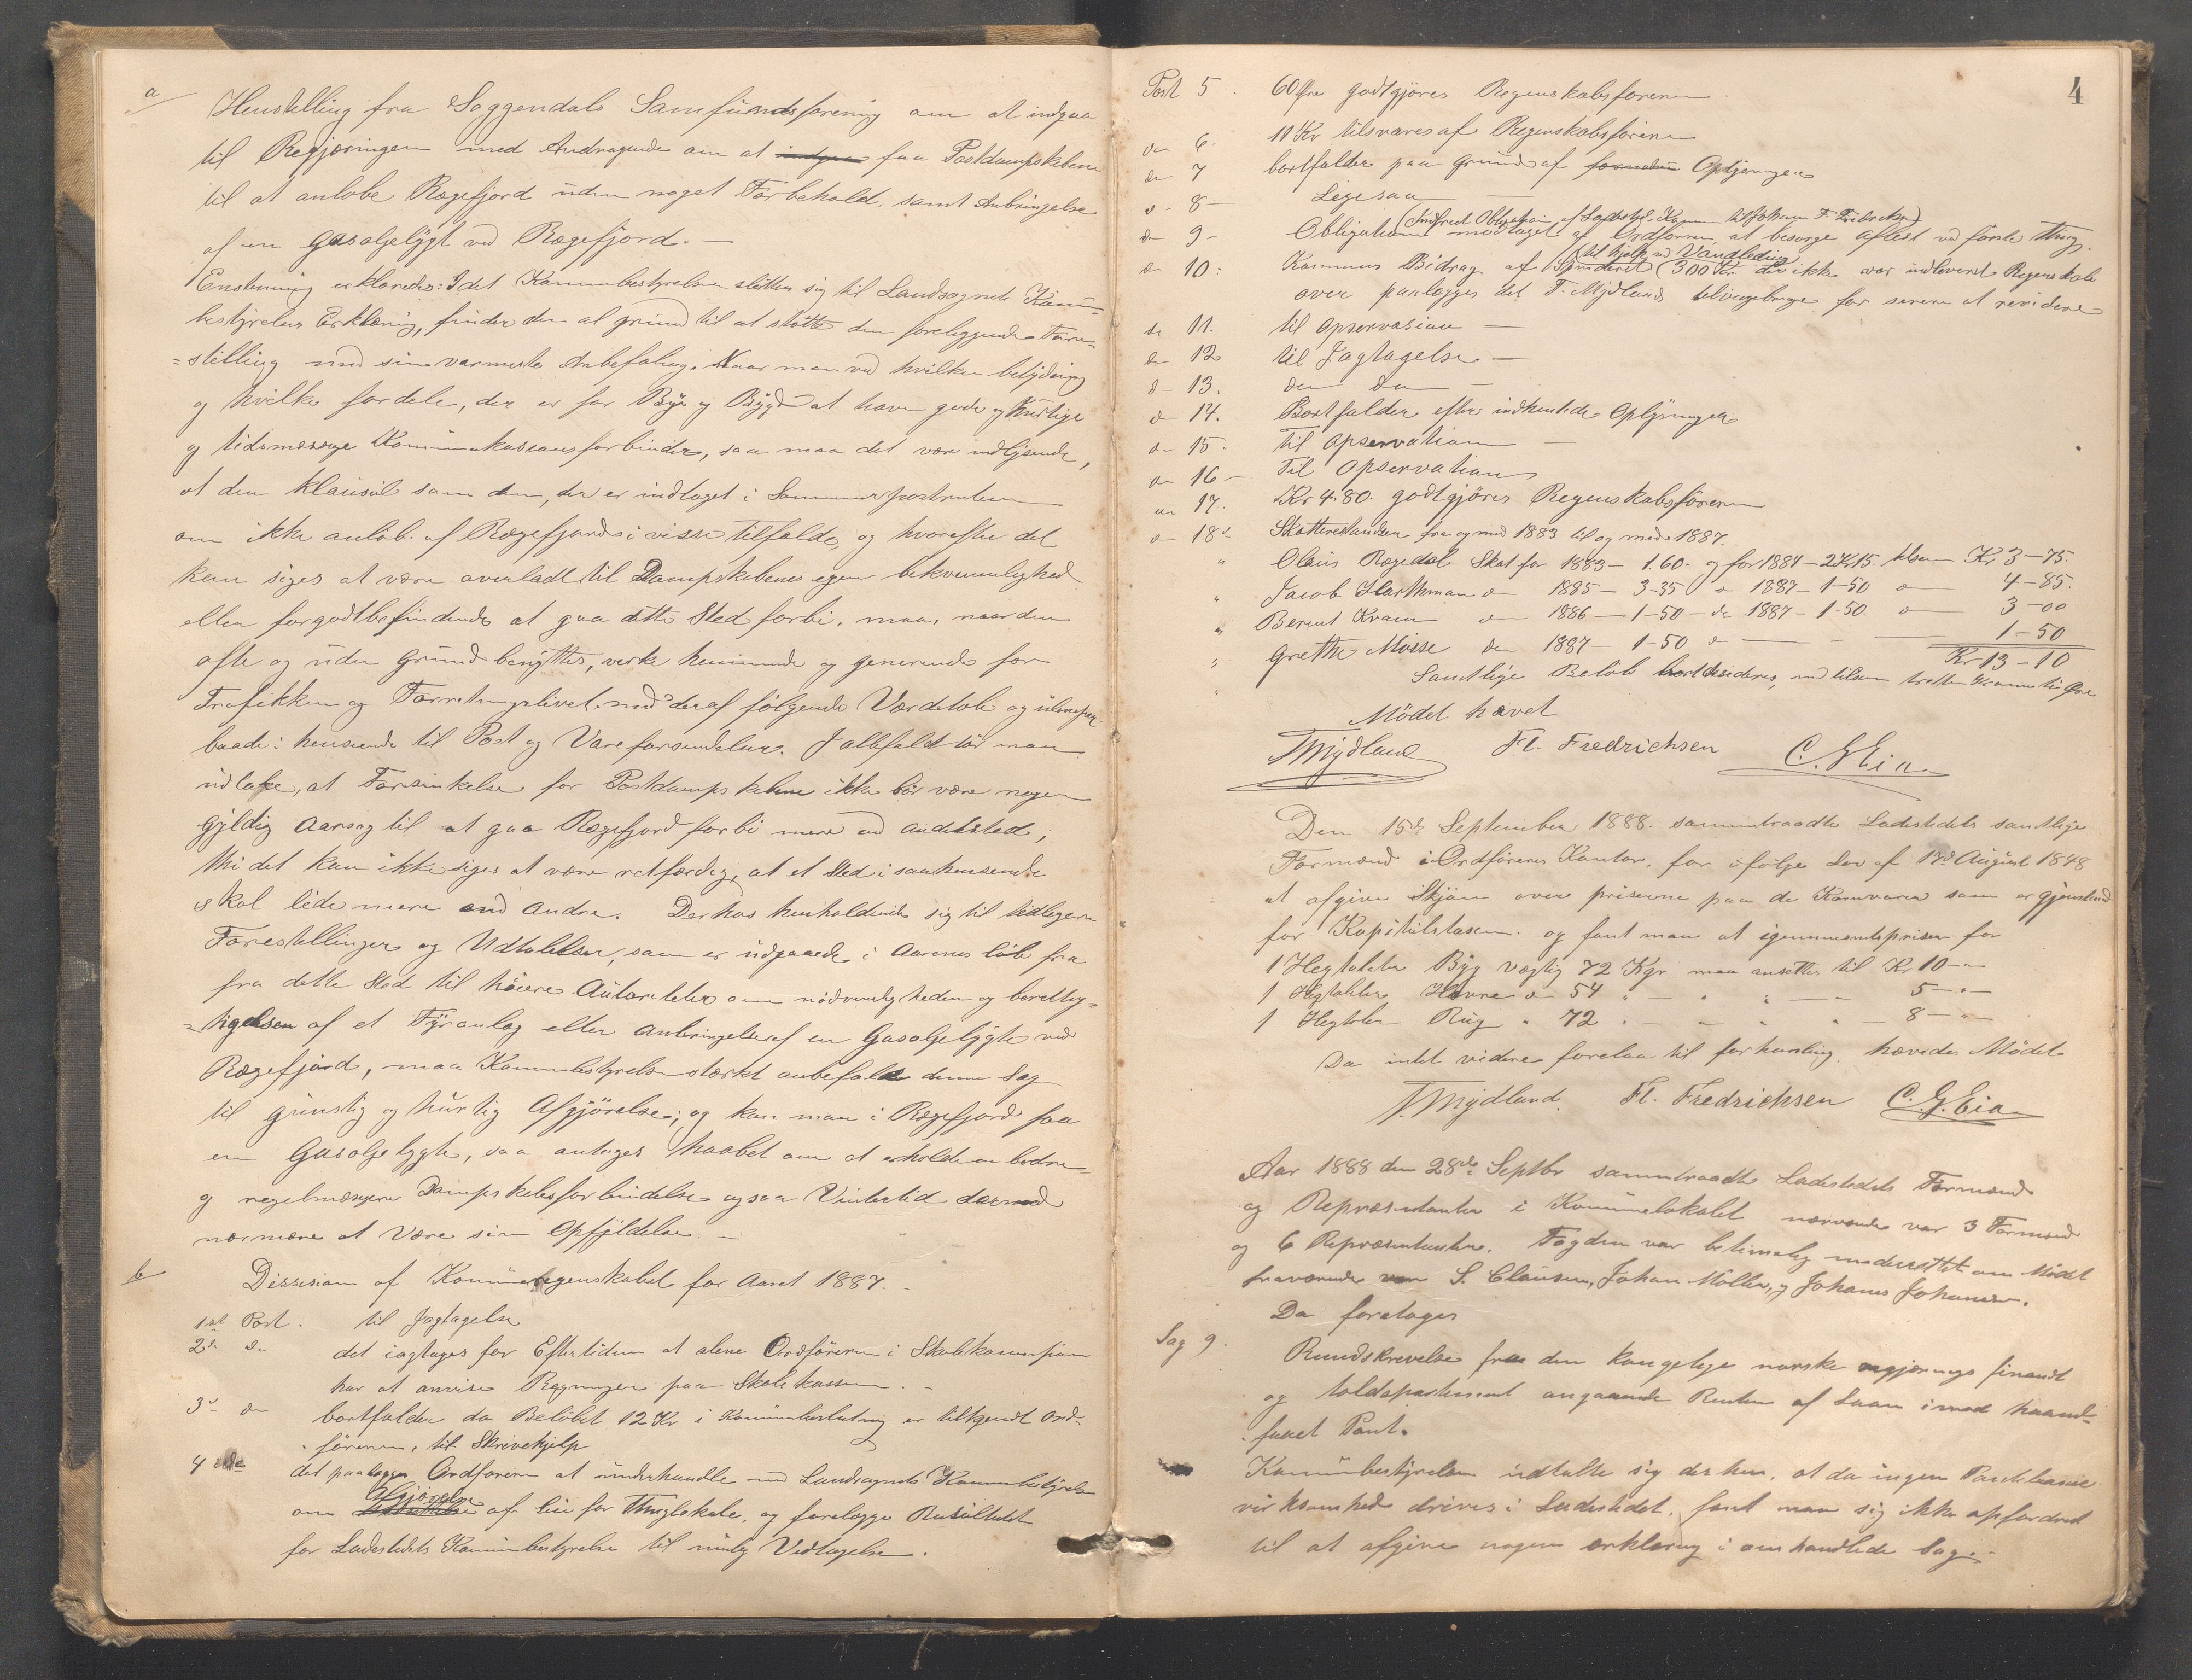 a
Henstelling fra Soggendals Samfundsforening om at indgaa
til Regjæringen med Andragende om at indgaa faa Postdampskibene
til at anløbe Rægefjord uden noget Forbehold, samt Anbringelse
af en Gasoljelygt ved Rægefjord. —
Enstemmig erklæredes: Idet Kommunbestyrelsen slutter sig til Landsognets Kom-
bestyrelses Erklæring, finder den al grund til at støtte den foreleggende Fore-
=stilling med sin varmeste Anbefaling. Naar man ved hvilken betydning
og hvilke fordele, der er for By og Bygd at have gode og hurtige
og tidsmæssige Kommunikasionsforbinder, saa maa det være indlysende,
at den klausul som den, der er indtaget i Sommerpostruten
om ikke anløb af Rægefjord i visse tilfælde, og hvorefter det
kan siges at være overladt til Dampskibenes egen bekvemmelighed
eller forgodtbefindende at gaa dette Sted forbi, maa, naar den
ofte og uden Grund benyttes, virke hemmende og generende for
Trafikken og Forretningslivet med deraf følgende Værditab og ulemper
baade i henseende til Post og Vareforsendelser. I alfald tør man
udtale, at Forsinkelse for Postdampskibene ikke bør være nogen
gyldig aarsag til at gaa Rægefjord forbi mere end andetsted,
thi det kan ikke siges at være retfærdig, at et Sted i saa henseende
skal lide mere end andre. Derhos henholdende sig til tidligere
Forestillinger og Udtalelser, som er udgaaede i Aarenes løb fra
fra dette Sted til høiere Autoriteter om nødvendigheden og beretti-
=tigelsen af et Fyranlæg eller anbringelse af en Gasoljelygte ved
Rægefjord, maa Kommunbestyrelsen stærkt anbefale denne Sag
til gunstig og hurtig Afgjørelse; og kan man i Rægefjord faa
en Gasoljelygte, saa antages haabet om at erholde en bedre
og regelmæssigere Dampskibsforbindelse ogsaa Vintertid dermed
nærmere at være sin Opfyldelse. —
b
Dissision af Kommuneregnskabet for Aaret 1887. —
1st Post. til Jagtagelse
2de do det iagtages for Eftertiden at alene Ordføreren i Skolekommisjon
har at anvise Regninger paa Skolekassen. —
3de do bortfalder da Beløbet 12 Kr i Kommunbeslutning er tilkjendt Ord-
føreren, til Skrivehjelp
4 de det paalægges Ordføreren at underhandle med Landsognets Kommunbestyrelse
om Afgjørelse af leie for Thinglokale, og forelægge Resultatet
for Ladestedets Kommunbestyrelse til mulig Vedtagelse.
4
Post 5. 60 Øre godtgjøres Regnskabsføreren
do 6. 11 Kr tilsvares af Regnskabsføreren
do 7 bortfalder paa grund af Oplysningen
do 8 — Ligesaa —
(Indfriet Obligation af Ladested-Kassen til Johan F. Fredriksen)
do 9 — Obligationen modtaget af Ordføreren, at besørge aflest ved første Thing.
(til hjelp ved Vandleding
do 10: Kommunens Bidrag af 300 Kr. der ikke var indleveret Regnskab
over paalægges det T. Mydland tilveiebringe for senere at revidere
do 11. til Opservasion —
do 12 til Jagtagelse —
d — 13. do do —
do 14. Bortfalder efter indhentede Oplysninger
do 15. til Opservation —
do 16 — Til Opservation
do 17. Kr 4.80. godtgjøres Regnskabsføreren
do 18de Skatterestandser fra og med 1883 til og med 1887.
" Olaus Rægedal Skat for 1883 — 1.60. og for 1884 — 2 Kr 15. tilsam Kr 3—75.
" Jacob Harthman do 1885 — 3-35 do 1887 — 1-50 do 4—85.
" Berent Kvam do 1886 — 1-50 — do 1887 — 1-50 do 3—00
" Grethe Mosse do 1887 — 1-50 do — 1—50
Kr 13—10
" Samtlige Beløb bortdesideres, med tilsam tretten Kroner ti Øre
Mødet hævet
T Mydland Fl. Fredrichsen C. G Eia
Den 15de September 1888. sammentraadte Ladestedets samtlige
Formænd i Ordførerens Kontor, for ifølge Lov af 17de August 1848
at afgive Skjøn over priserne paa de Kornvarer som er gjenstand
for Kapitulstaxen. og fant man at gjennemsnitsprisen for
1 Hegtoliter Byg vægtig 72 Kgr maa ansættes til Kr 10 —
1 Hegtoliter Havre do 54 " — " " — 5—"—
1 Hegtoliter Rug " 72 " — " " — 8—"—
Da intet videre forelaa til forhandling, hævedes Mødet
T. Mydland. Fl. Fredrichsen C. G. Eia
Aar 1888 den 28de Septbr sammentraadte Ladestedets Formænd
og Repræsentanter i Kommunelokalet nærværende var 3 Formænd
og 6 Repræsentanter. Fogden var betimelig underrettet om Mødet
fraværende var S. Clausen, Johan Møller, og Johannes Johansen.
Da foretages
Sag 9.
Rundskrivelse fra den kongelige norske regjerings finands
og tolddepartement angaaende Renten af Laan imod haand-
faaet Pant.
Kommunbestyrelsen udtalte sig derhen, at da ingen Pantelaane-
virksomhed drives i Ladestedet, fant man sig ikke opfordret
til at afgive nogen erklæring i omhandlede Sag. —